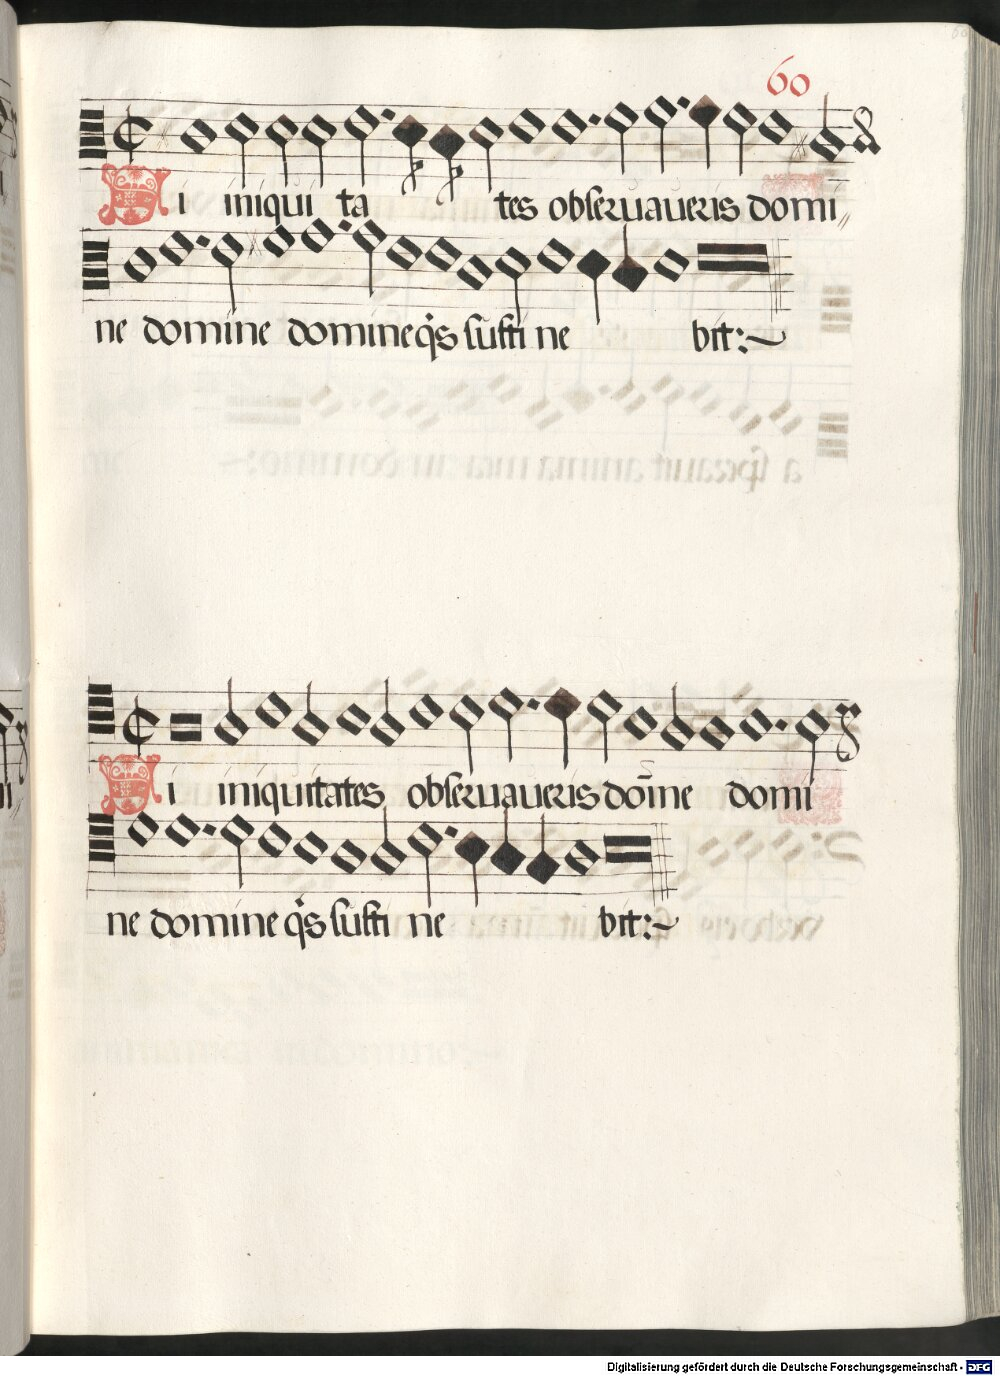 60
Si iniqui ta tes obseruaueris domi
ne domine domine q's susti ne bit:~
Si iniquitates obseruaueris dom̄ne domi
ne domine q's susti ne bit:~
Digitalisierung gefördert durch die Deutsche Forschungsgemeinschaft - DFG